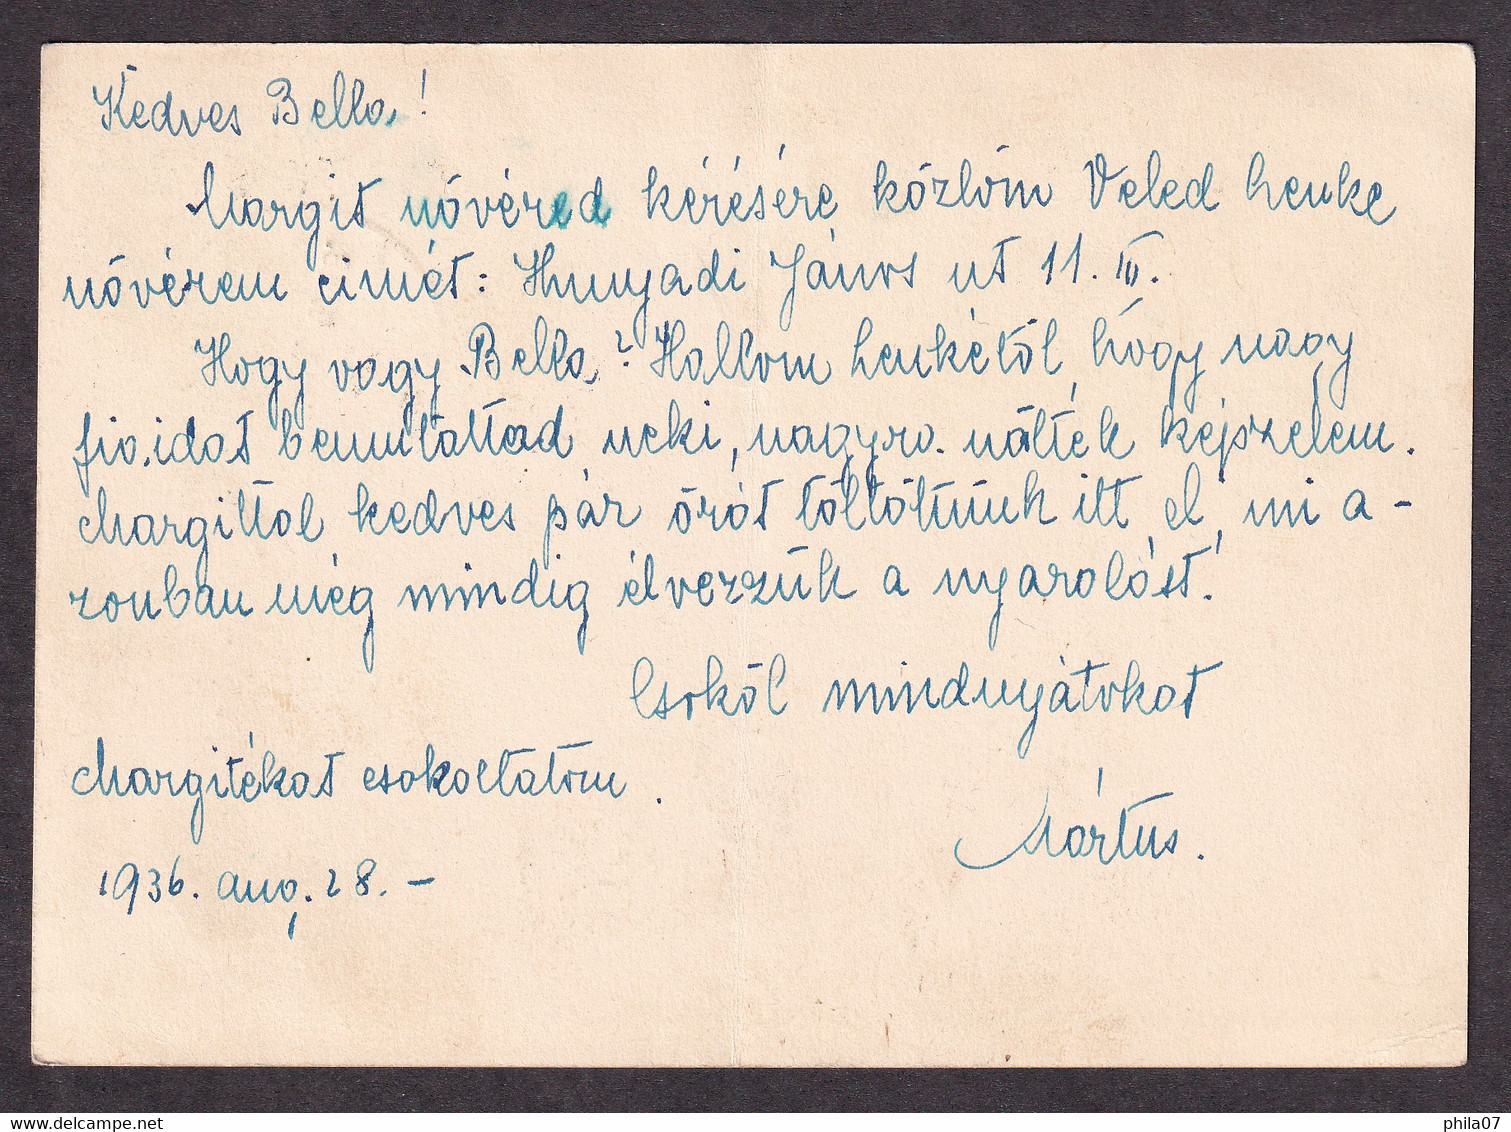 Kedves Bella!
Margit nővéred kérésére közlöm Veled Lenke
nővérem cimét: Hunyadi János ut 11. III.
Hogy vagy Bella? Hallom Lenkétől, hogy nagy
fiaidat bemutattad neki, nagyra nőttek képzelem.
Margittal kedves pár órát töltöttünk itt el, mi a-
zonban még mindig élvezzük a nyaralást!
Csokól mindnyájatokat
Margitékat csokoltatom.
Mártus.
1936. aug. 28. –
Delcampe.net
phila07